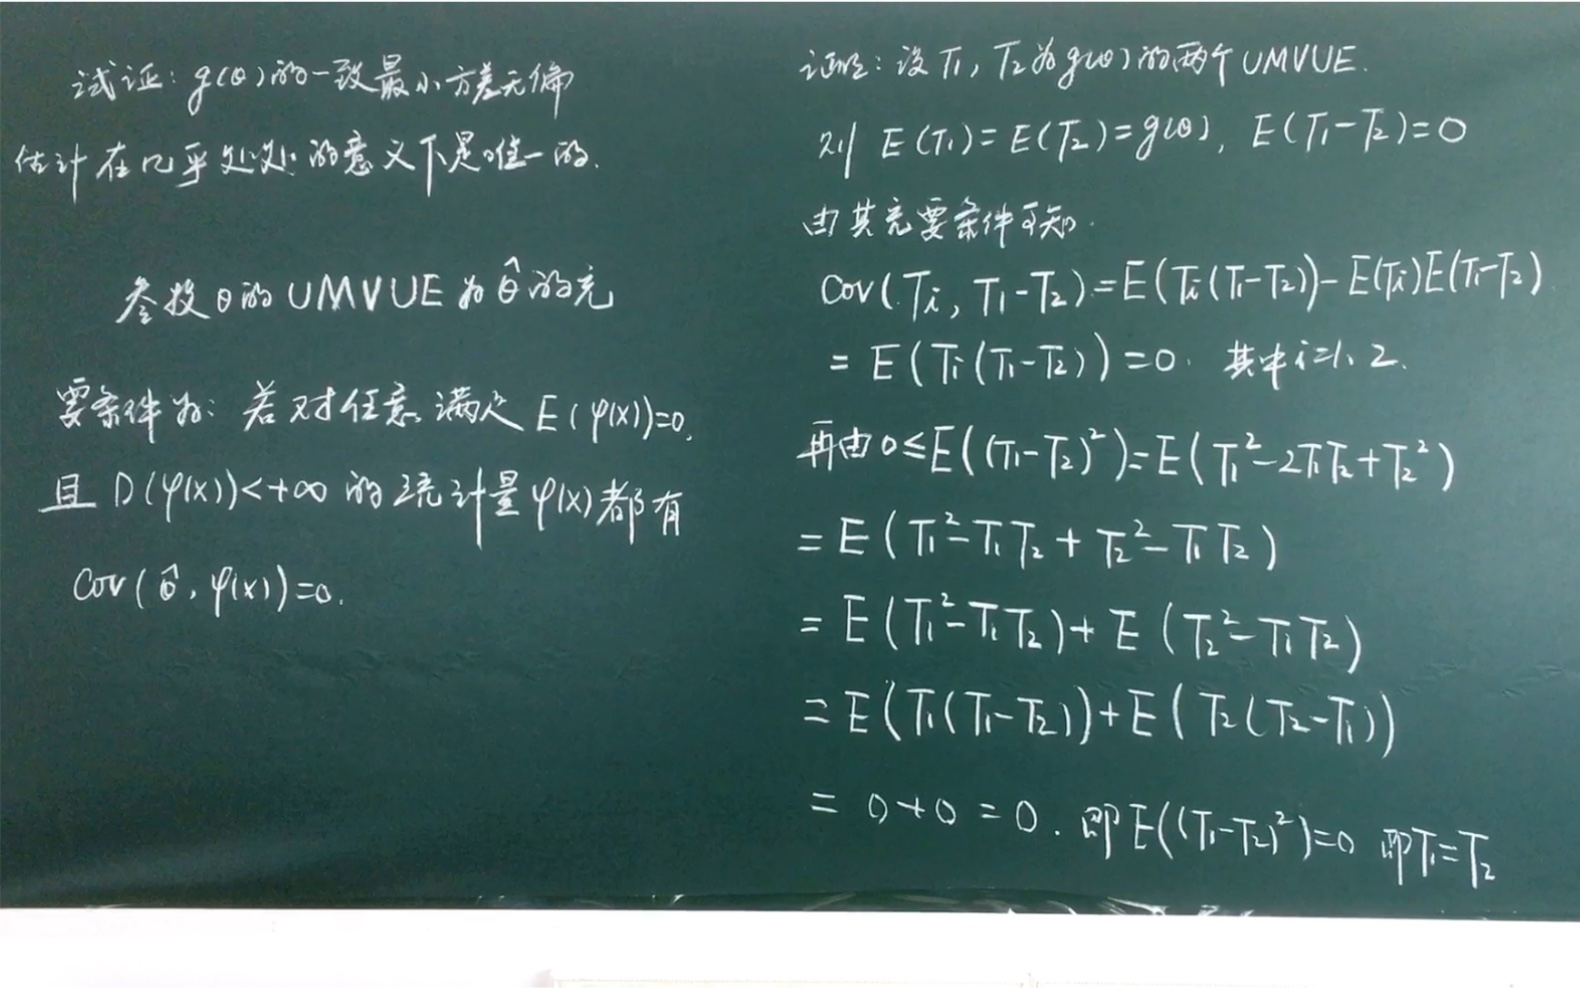 试证：g(θ)的一致最小方差无偏
估计在几乎处处的意义下是唯一的.
参投θ的UMVUE为θ̂的充
要条件为：若对任意满足E(φ(x))=0,
且D(φ(x))<+∞的统计量φ(x)都有
Cov(θ̂, φ(x))=0.
证明：设T₁, T₂为g(θ)的两个UMVUE.
则 E(T₁)=E(T₂)=g(θ), E(T₁-T₂)=0
由其充要条件可知.
Cov(Tᵢ, T₁-T₂)=E(Tᵢ(T₁-T₂))-E(Tᵢ)E(T₁-T₂)
=E(Tᵢ(T₁-T₂))=0. 其中i=1、2.
再由0≤E((T₁-T₂)²)=E(T₁²-2T₁T₂+T₂²)
=E(T₁²-T₁T₂+T₂²-T₁T₂)
=E(T₁²-T₁T₂)+E(T₂²-T₁T₂)
=E(T₁(T₁-T₂))+E(T₂(T₂-T₁))
=0+0=0. 即E((T₁-T₂)²)=0 即T₁=T₂